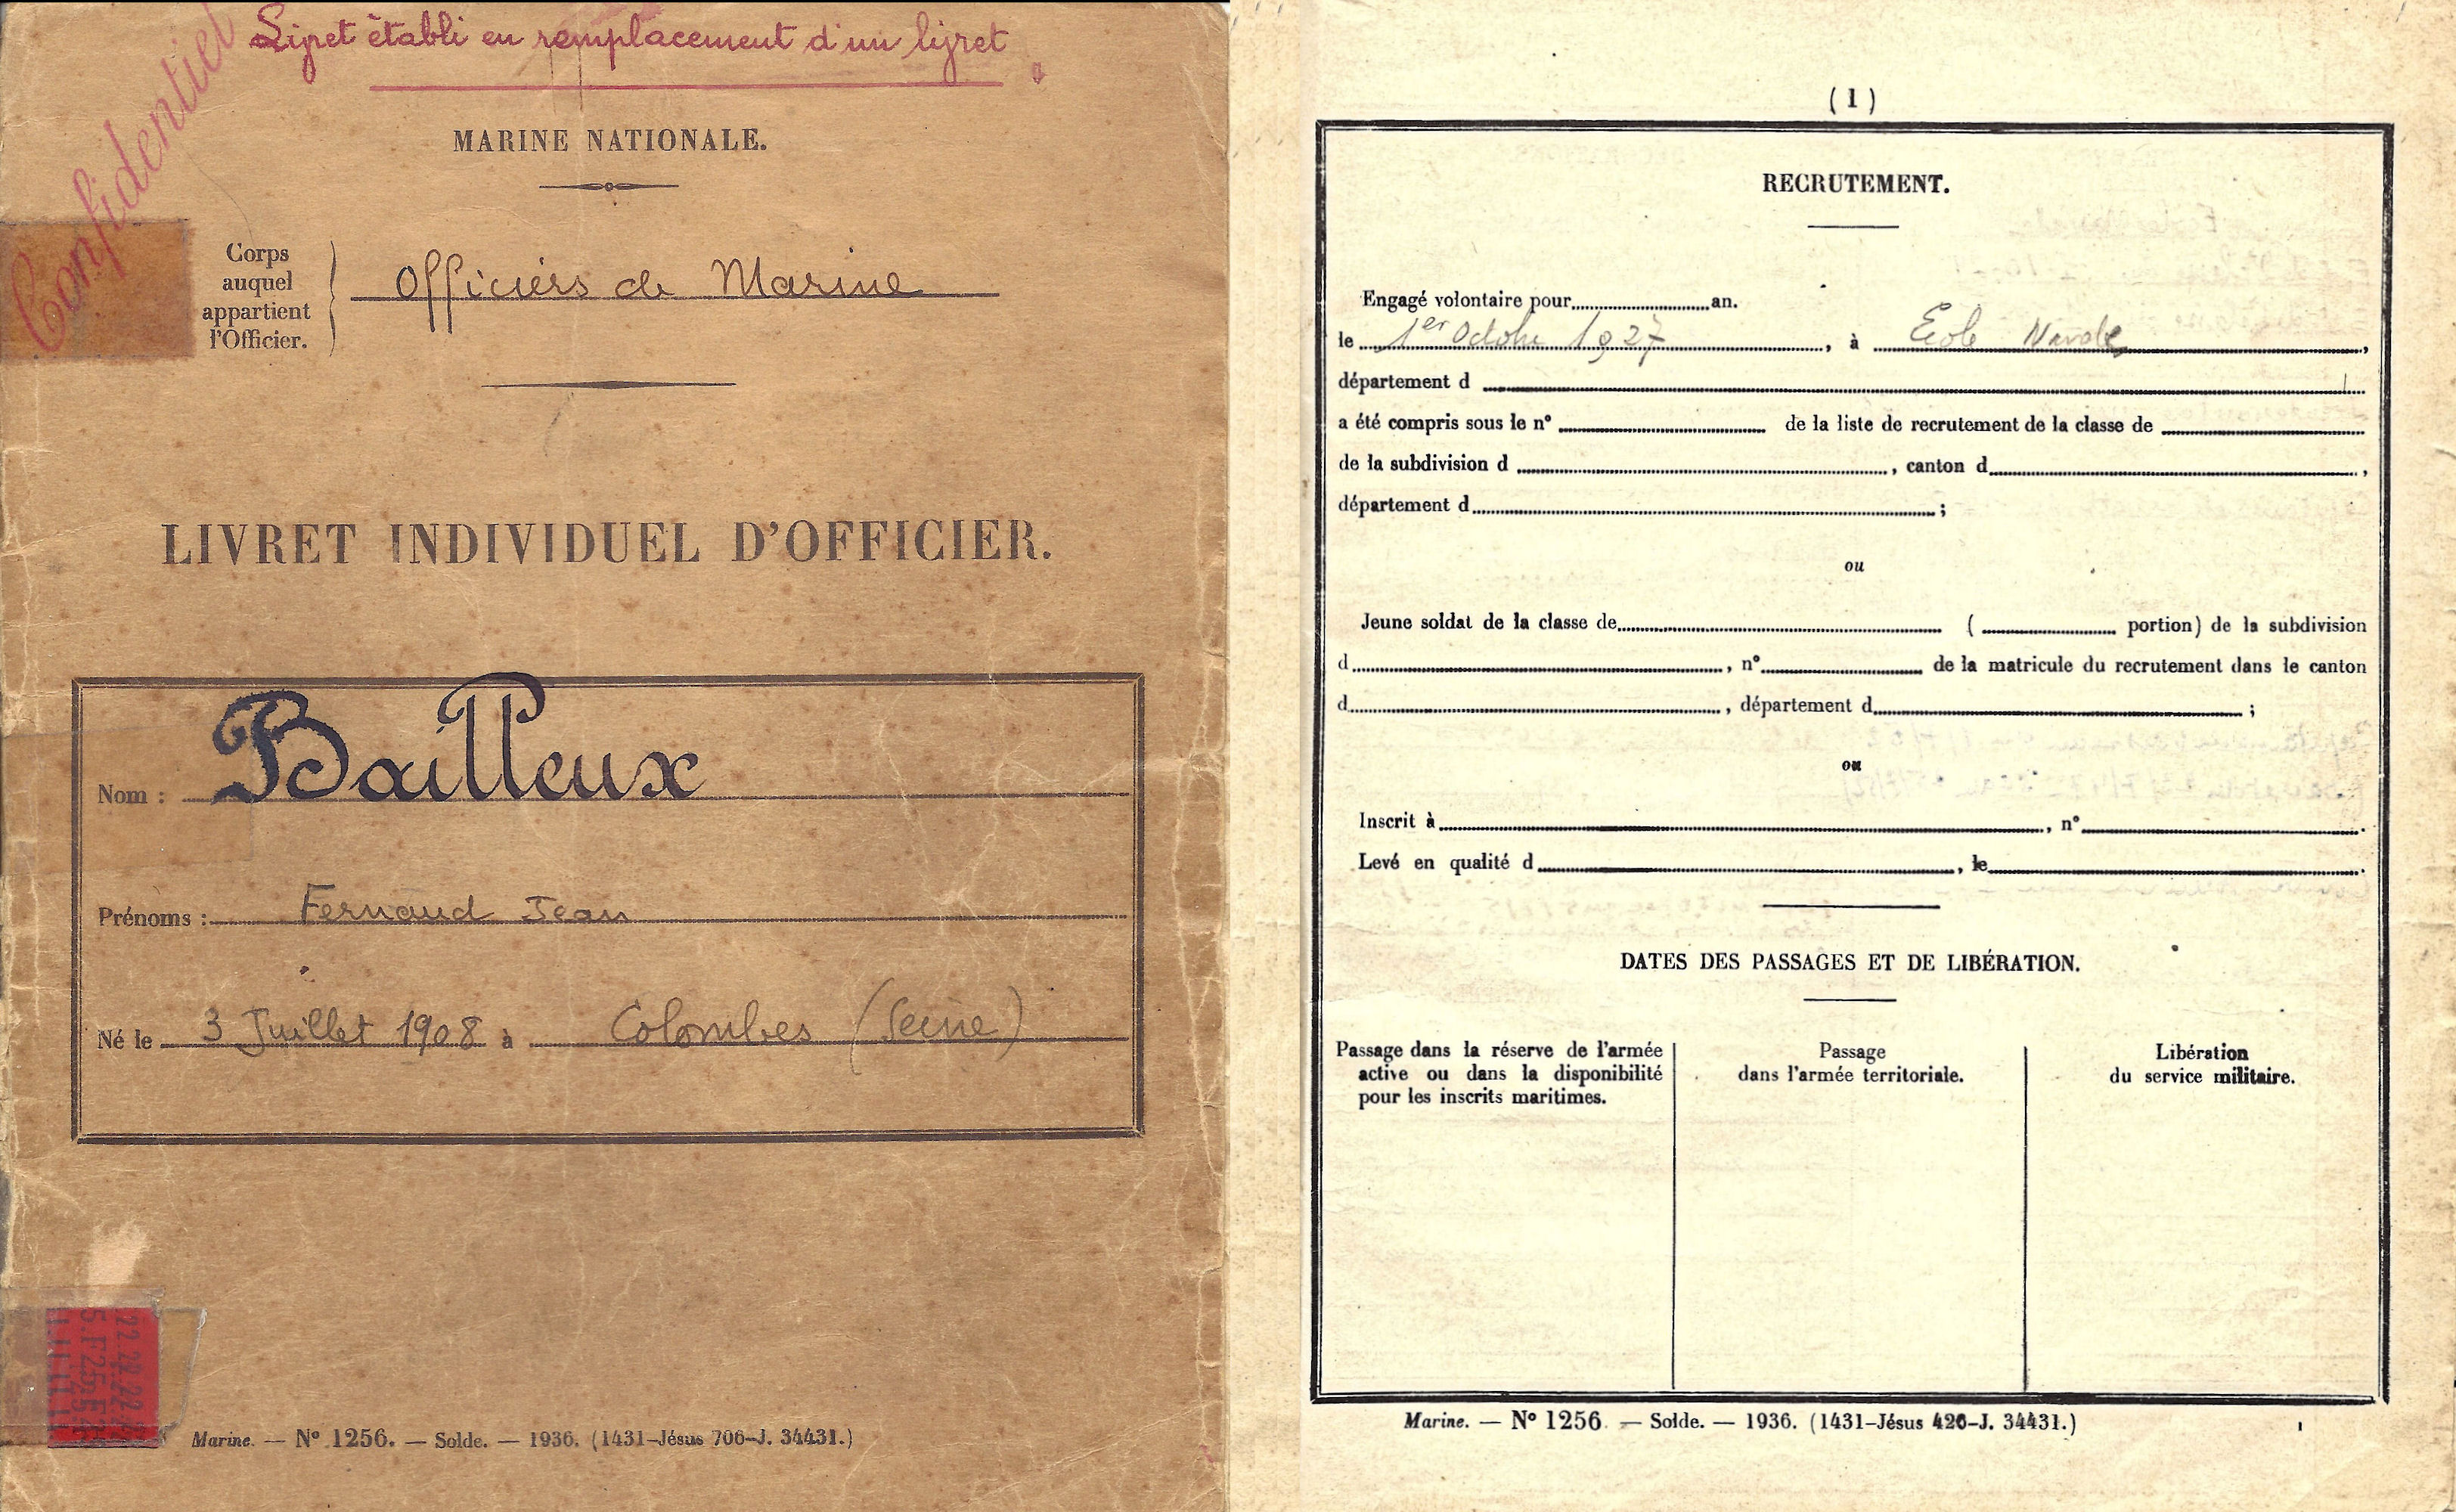 Livret établi en remplacement d'un livret
Confidentiel
MARINE NATIONALE.
Corps
auquel
appartient
l'Officier.
Officiers de Marine
LIVRET INDIVIDUEL D'OFFICIER.
Nom : Bailleux
Prénoms : Fernand Jean
Né le 3 Juillet 1908 à Colombes (Seine)
Marine. — N° 1256. — Solde. — 1936. (1431-Jésus 706-J. 34431.)
(1)
RECRUTEMENT.
Engagé volontaire pour an.
le 1er Octobre 1927, à Ecole Navale,
département d
a été compris sous le n° de la liste de recrutement de la classe de
de la subdivision d , canton d ,
département d ;
ou
Jeune soldat de la classe de ( portion) de la subdivision
d , n° de la matricule du recrutement dans le canton
d , département d ;
ou
Inscrit à , n° .
Levé en qualité d , le .
DATES DES PASSAGES ET DE LIBÉRATION.
Passage dans la réserve de l'armée
active ou dans la disponibilité
pour les inscrits maritimes.
Passage
dans l'armée territoriale.
Libération
du service militaire.
Marine. — N° 1256. — Solde. — 1936. (1431-Jésus 426-J. 34431.)
1